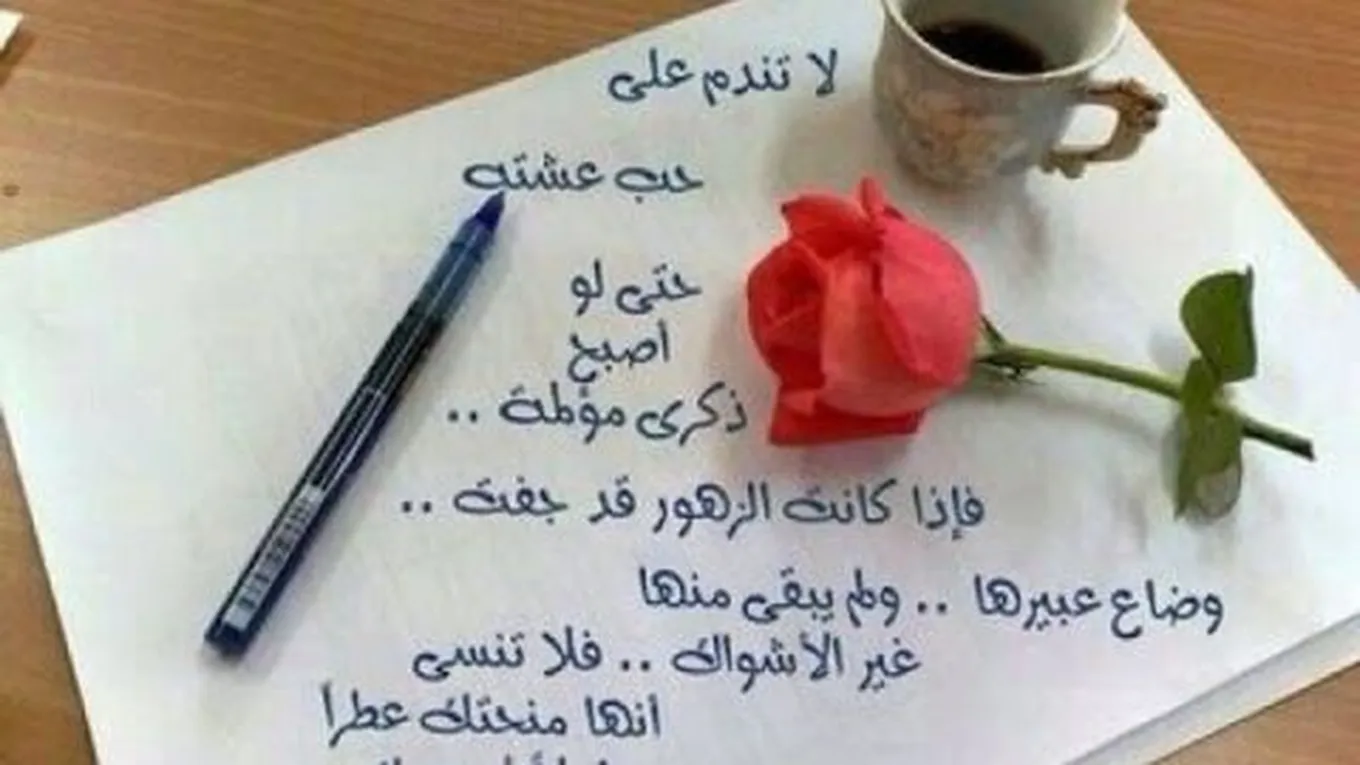 لا تندم على
حب عشته
حتى لو
اصبح
ذكرى مؤلمة ..
فإذا كانت الزهور قد جفت ..
وضاع عبيرها .. ولم يبقى منها
غير الأشواك .. فلا تنسى
انها منحتك عطرا